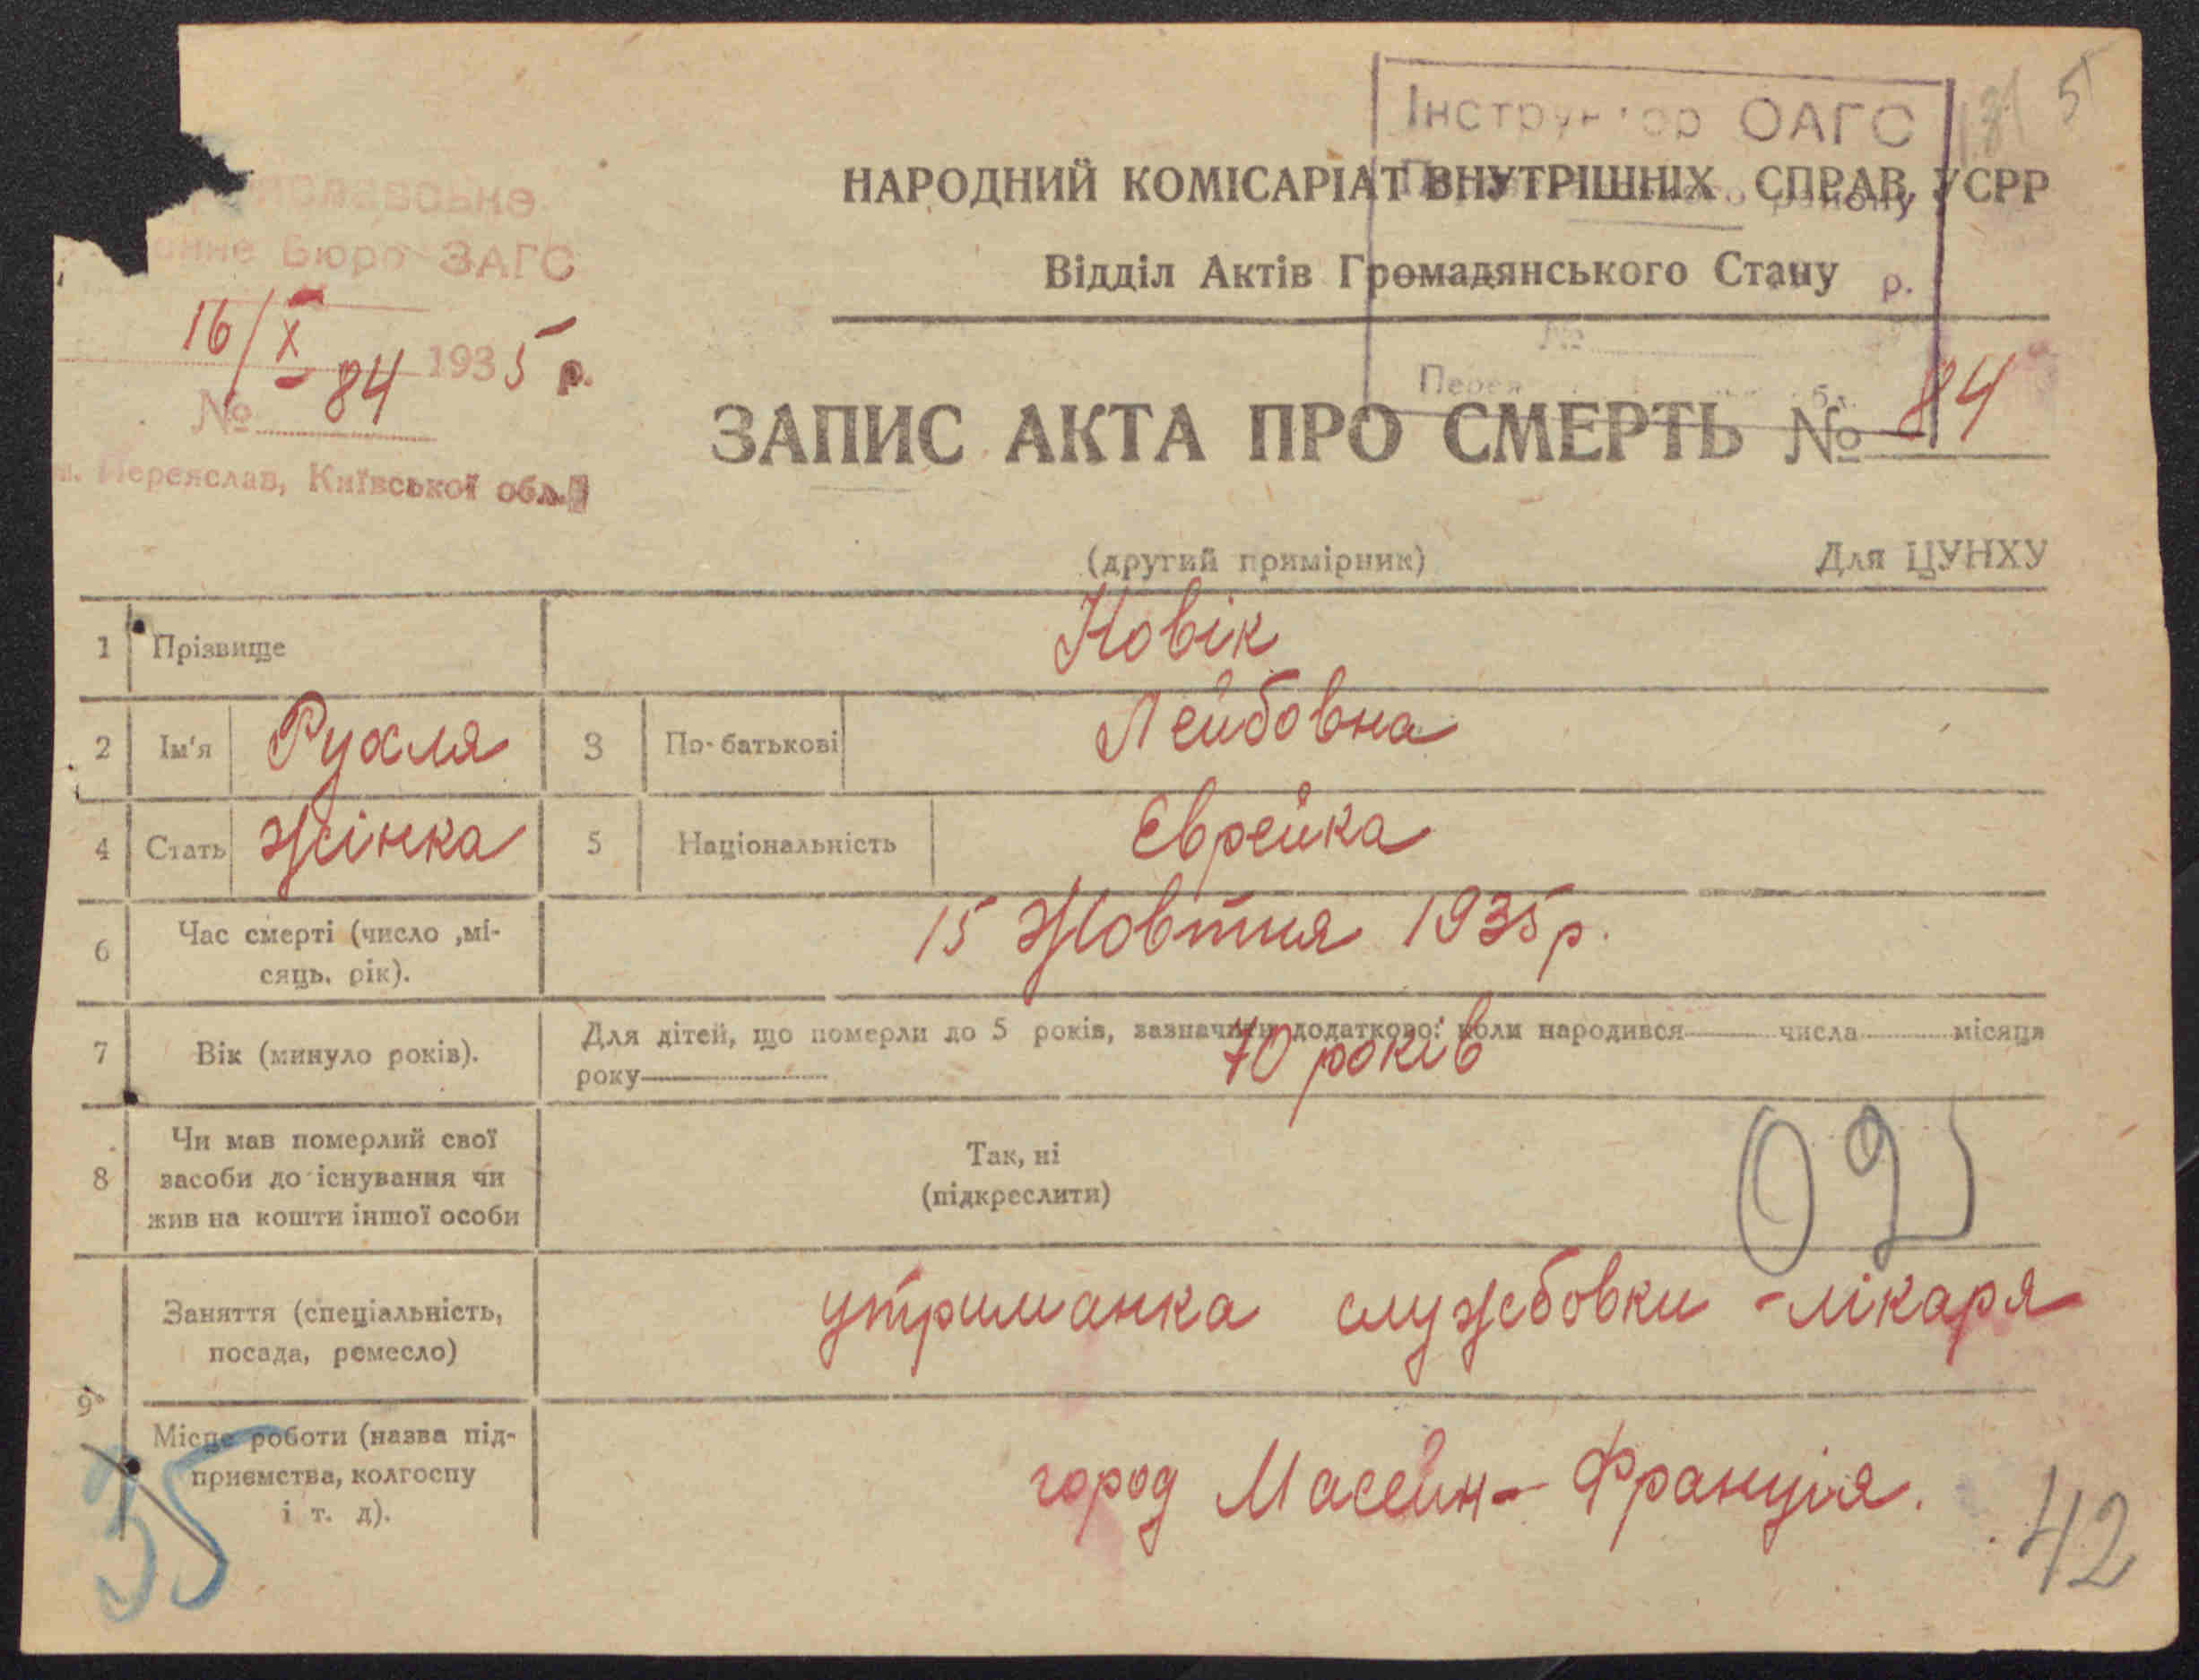 Інструктор ОАГС
131 5
НАРОДНИЙ КОМІСАРІАТ ВНУТРІШНІХ СПРАВ УСРР
району
Відділ Актів Громадянського Стану
р.
№
Бюро ЗАГС
16/X 1935 р.
№ 84
м. Переяслав, Київської обл.
ЗАПИС АКТА ПРО СМЕРТЬ № 84
(другий примірник) Для ЦУНХУ
1 Прізвище Новік
2 Ім'я Рухля 3 По-батькові Лейбовна
4 Стать жінка 5 Національність Єврейка
6 Час смерті (число ,мі-
сяць, рік).
15 Жовтня 1935 р.
7 Вік (минуло років).
Для дітей, що померли до 5 років, зазначити додатково: коли народився числа місяця
року
70 років
8 Чи мав померлий свої
засоби до існування чи
жив на кошти іншої особи
Так, ні
(підкреслити)
092
9 Заняття (спеціальність,
посада, ремесло)
утриманка службовки - лікаря
Місце роботи (назва під-
приємства, колгоспу
і т. д).
город Масейн - Франція.
35
42